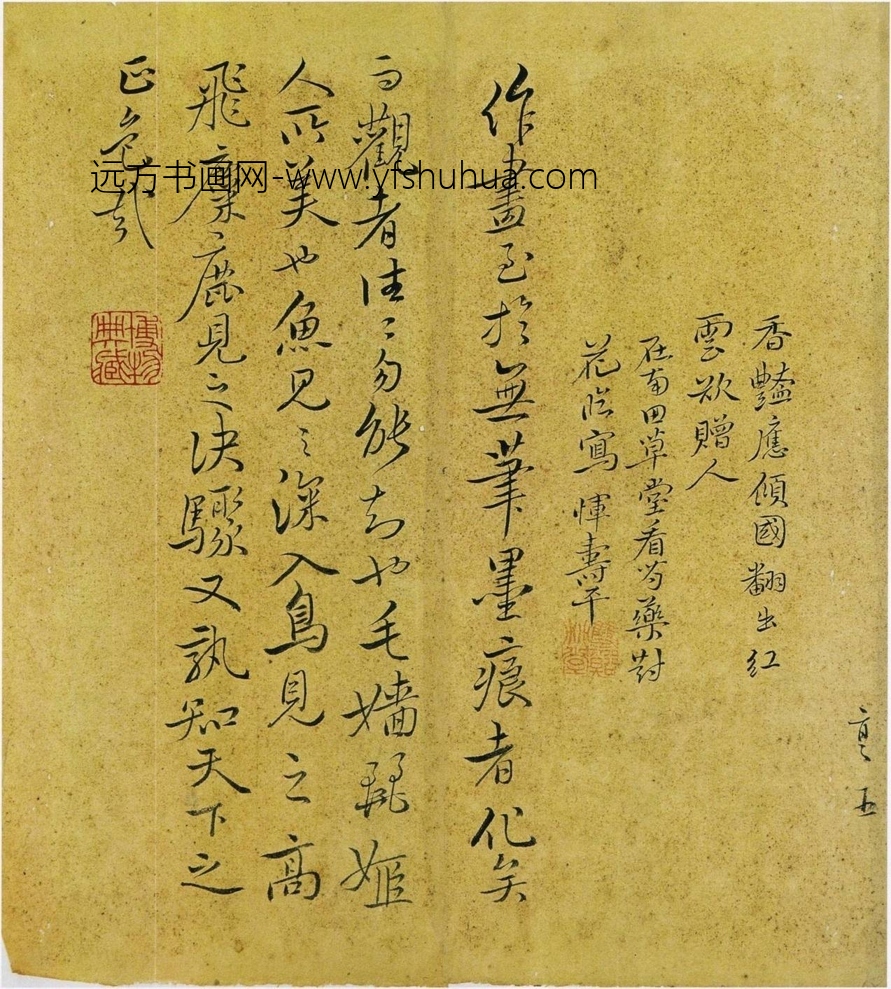 香豔應傾國翻出紅
雲欲贈人
在南田草堂看芍藥對
花臨寫惲壽平
作畫至於無筆墨痕者化矣
而觀者往〻勿能知也毛嬙麗姬
人所美也魚見之深入鳥見之高
飛麋鹿見之決驟又孰知天下之
正色哉
博物
典藏
远方书画网-www.yfshuhua.com